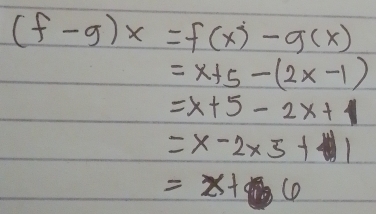 (f - g)x = f(x) - g(x)
= x+5 - (2x - 1)
= x+5 - 2x + 1
= x - 2x 5 + 1
= x + 6